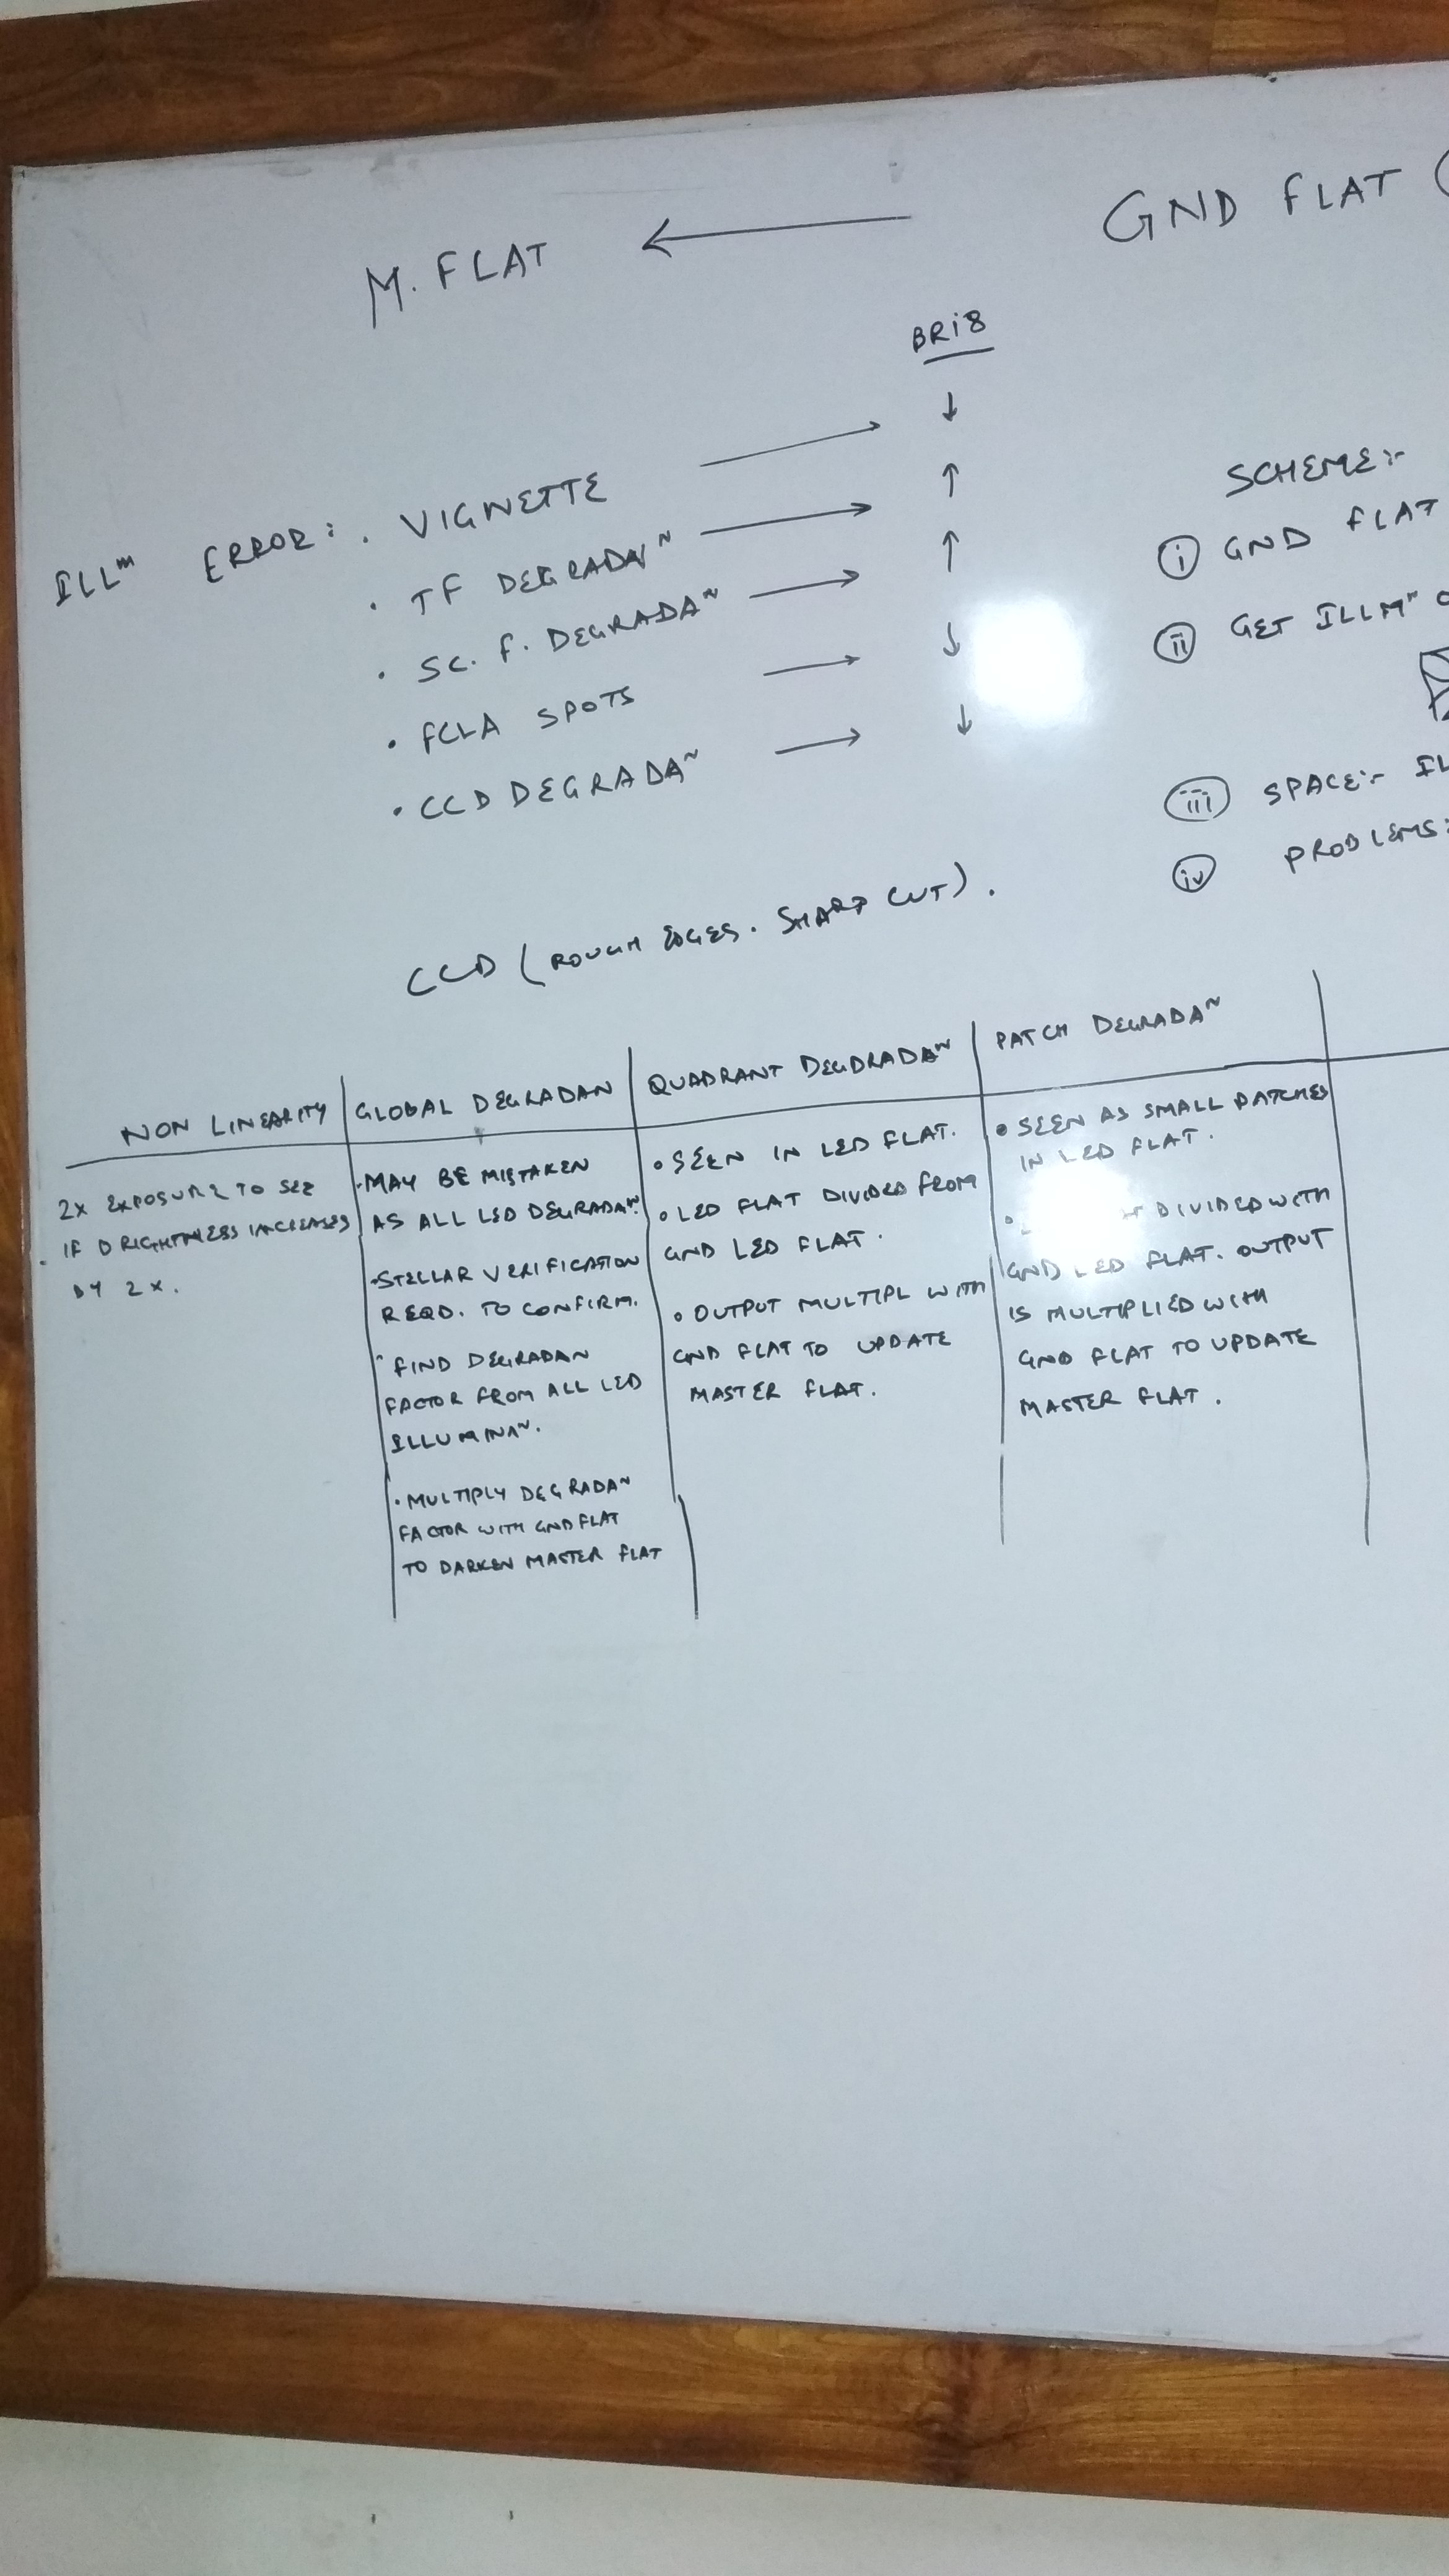 M. FLAT ← GND FLAT (
BRi8
ILLᵐ ERROR: . VIGNETTE → ↓
. TF DEGRADAᴺ → ↑
. SC. F. DEGRADAᴺ → ↑
. FCLA SPOTS → ↓
. CCD DEGRADAᴺ → ↓
SCHEME:-
(i) GND FLAT
(ii) GET ILLMⁿ
(iii) SPACE:-
(iv) PROBLEMS:
CCD (ROUGH EDGES. SHARP CUT).
NON LINEARITY
2X EXPOSURE TO SEE
. IF BRIGHTNESS INCREASES
BY 2X.
GLOBAL DEGRADAN
. MAY BE MISTAKEN
AS ALL LED DEGRADAᴺ.
. STELLAR VERIFICATION
REQD. TO CONFIRM.
. FIND DEGRADAN
FACTOR FROM ALL LED
ILLUMINAᴺ.
. MULTIPLY DEGRADAᴺ
FACTOR WITH GND FLAT
TO DARKEN MASTER FLAT
QUADRANT DEGDRADAᴺ
. SEEN IN LED FLAT.
. LED FLAT DIVIDED FROM
GND LED FLAT.
. OUTPUT MULTIPL WITH
GND FLAT TO UPDATE
MASTER FLAT.
PATCH DEGRADAᴺ
. SEEN AS SMALL PATCHES
IN LED FLAT.
. DIVIDED WITH
GND LED FLAT. OUTPUT
IS MULTIPLIED WITH
GND FLAT TO UPDATE
MASTER FLAT.